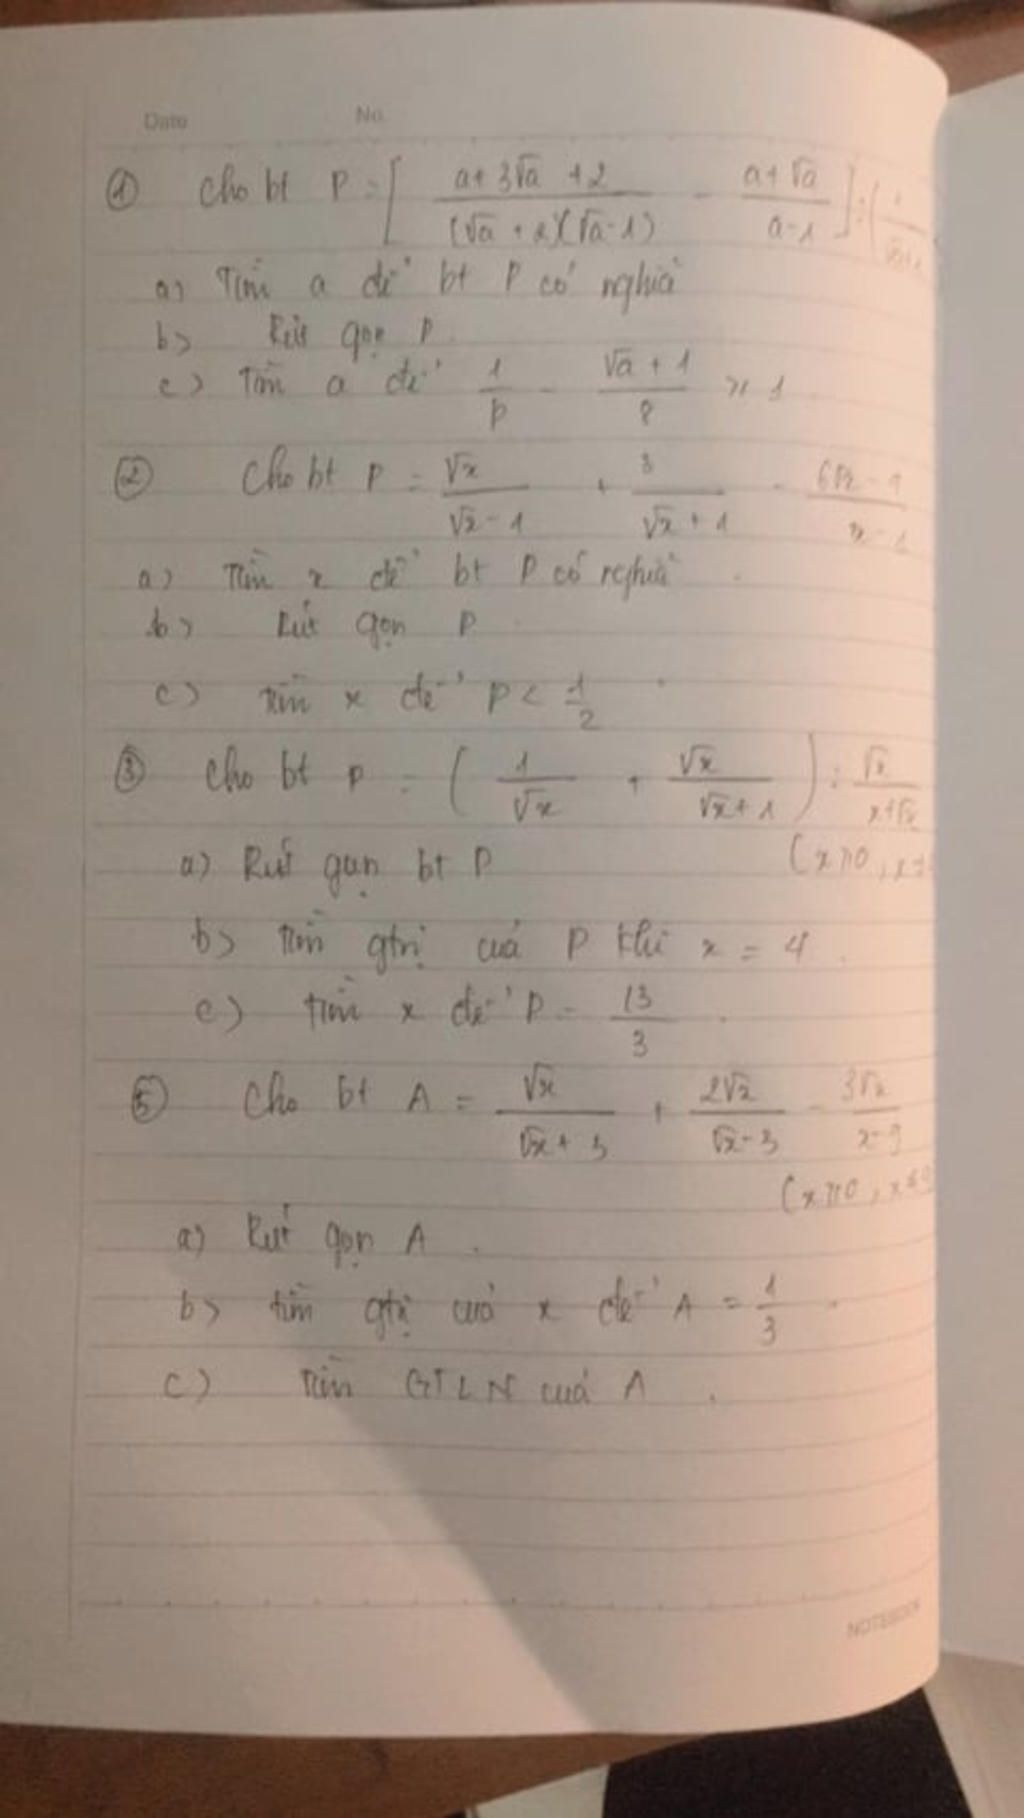 Date No.
① Cho bt P = [ (a + 3√a + 2)/((√a + 2)(√a - 1)) - (a + √a)/(a - 1) ] : (
a) Tìm a để bt P có nghĩa
b) Rút gọn P
c) Tìm a để 1/P - (√a + 1)/8 ≥ 1
② Cho bt P = √x/(√x - 1) + 3/(√x + 1) - (6√x - 4)/(x - 1)
a) Tìm x để bt P có nghĩa
b) Rút gọn P
c) Tìm x để P < 1/2
③ Cho bt P = ( 1/√x + √x/(√x + 1) ) : √x/(x + √x)
a) Rút gọn bt P (x ≥ 0, x
b) Tìm gtrị của P khi x = 4
c) tìm x để P = 13/3
⑤ Cho bt A = √x/(√x + 3) + 2√x/(√x - 3) - 3√x/(x - 9)
(x ≥ 0, x ≠ 9
a) Rút gọn A
b) tìm gtrị của x để A = 1/3
c) Tìm GTLN của A
NOTEBOOK